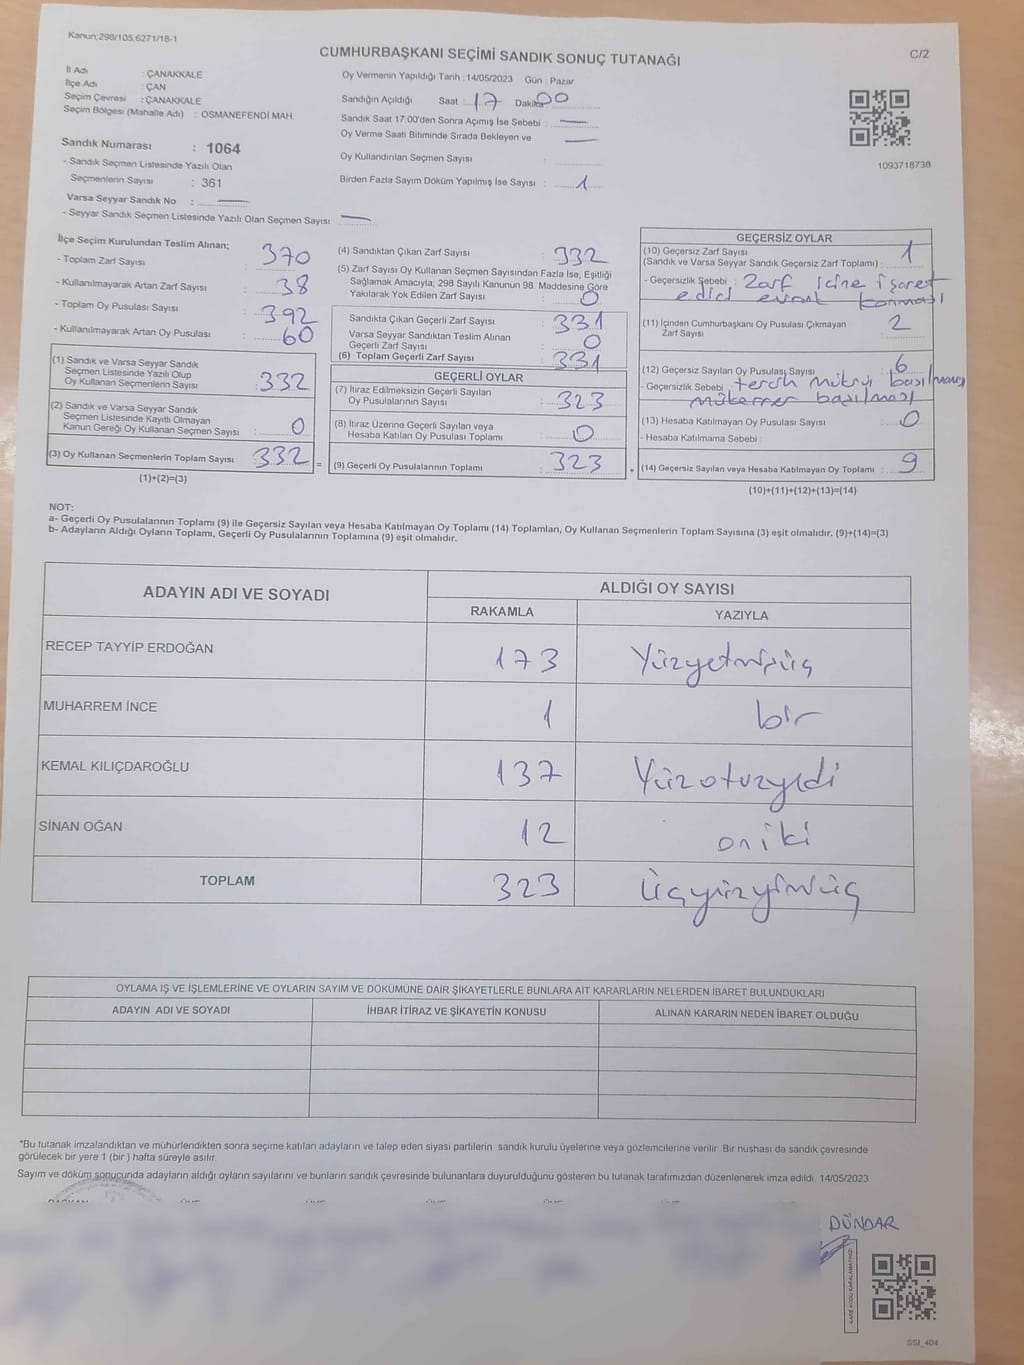 Kanun;298/105,6271/18-1
CUMHURBAŞKANI SEÇİMİ SANDIK SONUÇ TUTANAĞI
C/2
İl Adı : ÇANAKKALE
İlçe Adı : ÇAN
Seçim Çevresi : ÇANAKKALE
Seçim Bölgesi (Mahalle Adı) : OSMANEFENDİ MAH.
Sandık Numarası : 1064
- Sandık Seçmen Listesinde Yazılı Olan
Seçmenlerin Sayısı : 361
Varsa Seyyar Sandık No : —
- Seyyar Sandık Seçmen Listesinde Yazılı Olan Seçmen Sayısı: —
Oy Vermenin Yapıldığı Tarih : 14/05/2023 Gün : Pazar
Sandığın Açıldığı Saat : 17 Dakika 00
Sandık Saat 17:00'den Sonra Açımış İse Sebebi : —
Oy Verme Saati Bitiminde Sırada Bekleyen ve —
Oy Kullandırılan Seçmen Sayısı :
Birden Fazla Sayım Döküm Yapılmış İse Sayısı : 1
1093718738
İlçe Seçim Kurulundan Teslim Alınan;
- Toplam Zarf Sayısı : 370
- Kullanılmayarak Artan Zarf Sayısı : 38
- Toplam Oy Pusulası Sayısı : 392
- Kullanılmayarak Artan Oy Pusulası : 60
(1) Sandık ve Varsa Seyyar Sandık
Seçmen Listesinde Yazılı Olup
Oy Kullanan Seçmenlerin Sayısı : 332
(2) Sandık ve Varsa Seyyar Sandık
Seçmen Listesinde Kayıtlı Olmayan
Kanun Gereği Oy Kullanan Seçmen Sayısı : 0
(3) Oy Kullanan Seçmenlerin Toplam Sayısı : 332
(1)+(2)=(3)
=
(4) Sandıktan Çıkan Zarf Sayısı : 332
(5) Zarf Sayısı Oy Kullanan Seçmen Sayısından Fazla İse, Eşitliği
Sağlamak Amacıyla; 298 Sayılı Kanunun 98. Maddesine Göre
Yakılarak Yok Edilen Zarf Sayısı : 0
Sandıkta Çıkan Geçerli Zarf Sayısı : 331
Varsa Seyyar Sandıktan Teslim Alınan
Geçerli Zarf Sayısı : 0
(6) Toplam Geçerli Zarf Sayısı : 331
GEÇERLİ OYLAR
(7) İtiraz Edilmeksizin Geçerli Sayılan
Oy Pusulalarının Sayısı : 323
(8) İtiraz Üzerine Geçerli Sayılan veya
Hesaba Katılan Oy Pusulaları Toplamı : 0
(9) Geçerli Oy Pusulalarının Toplamı : 323
+
GEÇERSİZ OYLAR
(10) Geçersiz Zarf Sayısı
(Sandık ve Varsa Seyyar Sandık Geçersiz Zarf Toplamı) : 1
- Geçersizlik Sebebi : Zarf içine işaret
edici evrak konması
(11) İçinden Cumhurbaşkanı Oy Pusulası Çıkmayan
Zarf Sayısı : 2
(12) Geçersiz Sayılan Oy Pusulası Sayısı : 6
- Geçersizlik Sebebi : tercih mührü basılmaması
mükerrer basılması
(13) Hesaba Katılmayan Oy Pusulası Sayısı : 0
- Hesaba Katılmama Sebebi :
(14) Geçersiz Sayılan veya Hesaba Katılmayan Oy Toplamı : 9
(10)+(11)+(12)+(13)=(14)
NOT:
a- Geçerli Oy Pusulalarının Toplamı (9) ile Geçersiz Sayılan veya Hesaba Katılmayan Oy Toplamı (14) Toplamları, Oy Kullanan Seçmenlerin Toplam Sayısına (3) eşit olmalıdır. (9)+(14)=(3)
b- Adayların Aldığı Oyların Toplamı, Geçerli Oy Pusulalarının Toplamına (9) eşit olmalıdır.
ADAYIN ADI VE SOYADI ALDIĞI OY SAYISI
RAKAMLA YAZIYLA
RECEP TAYYİP ERDOĞAN 173 Yüzyetmişüç
MUHARREM İNCE 1 bir
KEMAL KILIÇDAROĞLU 137 Yüzotuzyedi
SİNAN OĞAN 12 oniki
TOPLAM 323 Üçyüzyirmiüç
OYLAMA İŞ VE İŞLEMLERİNE VE OYLARIN SAYIM VE DÖKÜMÜNE DAİR ŞİKAYETLERLE BUNLARA AİT KARARLARIN NELERDEN İBARET BULUNDUKLARI
ADAYIN ADI VE SOYADI İHBAR İTİRAZ VE ŞİKAYETİN KONUSU ALINAN KARARIN NEDEN İBARET OLDUĞU
*Bu tutanak imzalandıktan ve mühürlendikten sonra seçime katılan adayların ve talep eden siyasi partilerin sandık kurulu üyelerine veya gözlemcilerine verilir. Bir nüshası da sandık çevresinde
görülecek bir yere 1 (bir ) hafta süreyle asılır.
Sayım ve döküm sonucunda adayların aldığı oyların sayılarını ve bunların sandık çevresinde bulunanlara duyurulduğunu gösteren bu tutanak tarafımızdan düzenlenerek imza edildi. 14/05/2023
DÜNDAR
KARE KODU KARALAMAYINIZ!
SSI_404